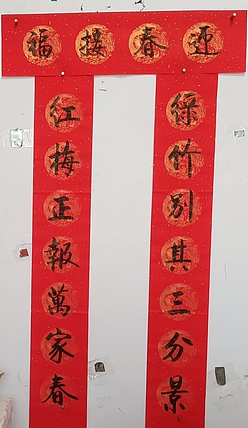 迎春接福
绿竹别其三分景
红梅正報萬家春